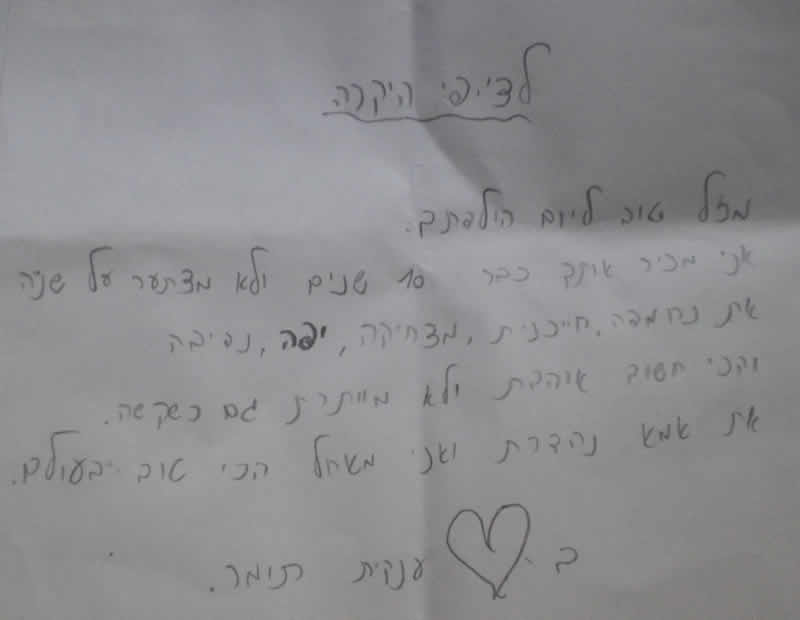 לציפי היקרה
מזל טוב ליום הולדתך.
אני מכיר אותך כבר 10 שנים ולא מצטער על שניה
את נחמדה, חייכנית, מצחיקה, יפה, נדיבה
והכי חשוב אוהבת ולא מוותרת גם כשקשה.
את אמא נהדרת ואני מאחל הכי טוב בעולם.
ב ♡ ענקית תומר.